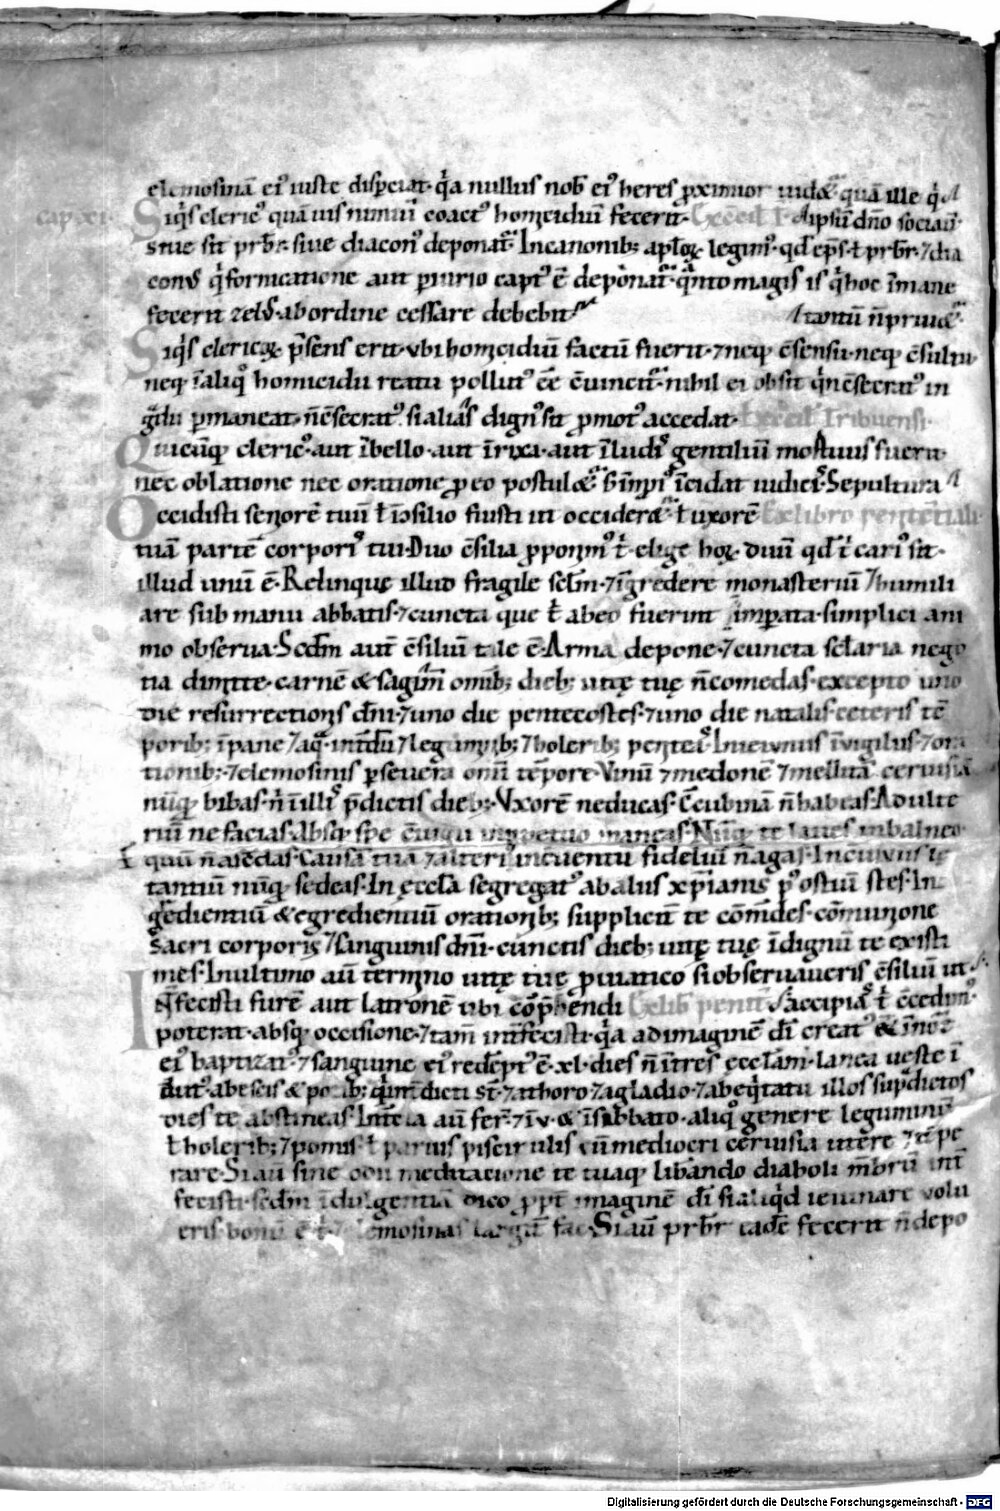 elemosinā ei᷒ iuste disp̄ciat· q̇a nullus nob̄ ei᷒ heres ꝓximior uidet᷑ quā ille q̇
cap xi· Siq̇s cleric᷒ quāuis nimiū coact᷒ homicidiū fecerit· Ex cōcil
siue sit prb̄r· siue diacon᷒ deponat᷑ In canonib; apl̄oꝝ legim᷒· qd̄ ep̄s· ł prb̄r· ⁊ dia
con᷒ q̇ fornicatione aut piurio capt᷒ ē deponat᷑· q̇nto magis is q̇ hoc īmane
fecerit scel᷒· ab ordine cessare debebit· tantū n̄ priuet᷑·
Siq̇s clericoꝝ p̄sens erit· ubi homicidiū factū fuerit· ⁊ neqꝫ c̄sensu· neqꝫ c̄siliu·
neqꝫ ī aliq̊ homicidii reatu pollut᷒ eē c̄uincit᷑· nihil ei obsit q̇n c̄secrat᷒ in
g̊du ꝑmaneat· n̄ c̄secrat᷒ si alias dign᷒ sit ꝓmot᷒ accedat· Tribuensi·
Quicūqꝫ cleric᷒· aut ī bello· aut ī rixa· aut ī ludis gentiliū mortuus fuerit·
nec oblatione nec oratione ꝓ eo postulet᷑ īcidat iudicis· Sepultura
Occidisti seniorē tuū ł ī c̄silio fuisti ut occideret᷑ ł uxorē Ex libro penitentiali
tuā partē corporis tui· Duo c̄silia ꝓponim᷒ t̄· elige hoꝝ duū qd̄ t̄ cari᷒ sit·
illud unū ē· Relinque illud fragile scl̄m· ⁊ īgredere monasteriū ⁊ humili
are sub manu abbatis· ⁊ cuncta que t̄ ab eo fuerint imp̄ata· simplici ani
mo obserua· Scd̄m aut̄ c̄siliū tale ē· Arma depone· ⁊ cuncta scl̄aria nego
tia dimitte· carnē & sagim̄ omīb; dieb; uitę tuę n̄ comedas· excepto uno
die resurrectionis dn̄i· ⁊ uno die pentecostes· ⁊ uno die natalis· ceteris tē
porib; ī pane ⁊ aq̇ ⁊ leguminib; ⁊ holerib; In ieiuniis ī uigiliis ⁊ ora
tionib; ⁊ elemosinis ꝑseuera omī tēpore· Vinū ⁊ medonē ⁊ mellitā ceruisiā
nūqꝫ bibas· n̄ ī illis p̄dictis dieb; Vxorē ne ducas· C̄cubinā n̄ habeas· Adulte
riū ne facias· Absqꝫ spe Nūqꝫ te laues in balneo·
Equū n̄ ascēdas· Causā tuā ⁊ alteri᷒ in cuentu fideliū n̄ agas· In cuiuiis le
tantiū nūqꝫ sedeas· In ęccl̄a segregat᷒ ab aliis xp̄ianis p᷒ ostiū stes· In
gredientiū & egredientiū orationib; suppliciter te cōmēdes· cōmunione
sacri corporis ⁊ sanguinis dn̄i· cunctis dieb; uitę tuę īdignū te existi
mes· In ultimo aut̄ termino uitę tuę ꝓ uiatico si obseruaueris c̄siliū ut
Int̄fecisti furē aut latronē ubi cōp̄hendi Ex lib̄ penit̄ accipias t̄ c̄cedim᷒·
poterat· absqꝫ occisione· ⁊ tam̄ int̄fecisti· q̇a ad imaginē dī creat᷒ & ī nōe
ei᷒ baptizat᷒ ⁊ sanguine ei᷒ redēpt᷒ ē· xl· dies n̄ int̄res eccl̄am· lanea ueste ī
dut᷒· ab escis & potib; q̇ int̄dicti st̄· ⁊ a thoro ⁊ a gladio· ⁊ ab eq̇tatu illos sup̄dictos
dies te abstineas· In t̄cia aut̄ fer̄· ⁊ ī v· & ī sabbato· aliq̊ genere leguminū
ł holerib; ⁊ pomis· ł paruis pisciculis cū mediocri ceruisia utere ⁊ tēpe
rare· Si aut̄ sine odii meditatione te tuaqꝫ liberando diaboli mēbrū int̄
fecisti· scd̄m īdulgentiā dico ꝓpt̄ imaginē dī si aliq̇d ieiunare uolu
eris· bonū ē t̄· ⁊ elemosinas largit̄ fac· Si aut̄ prb̄r eadē fecerit n̄ depo